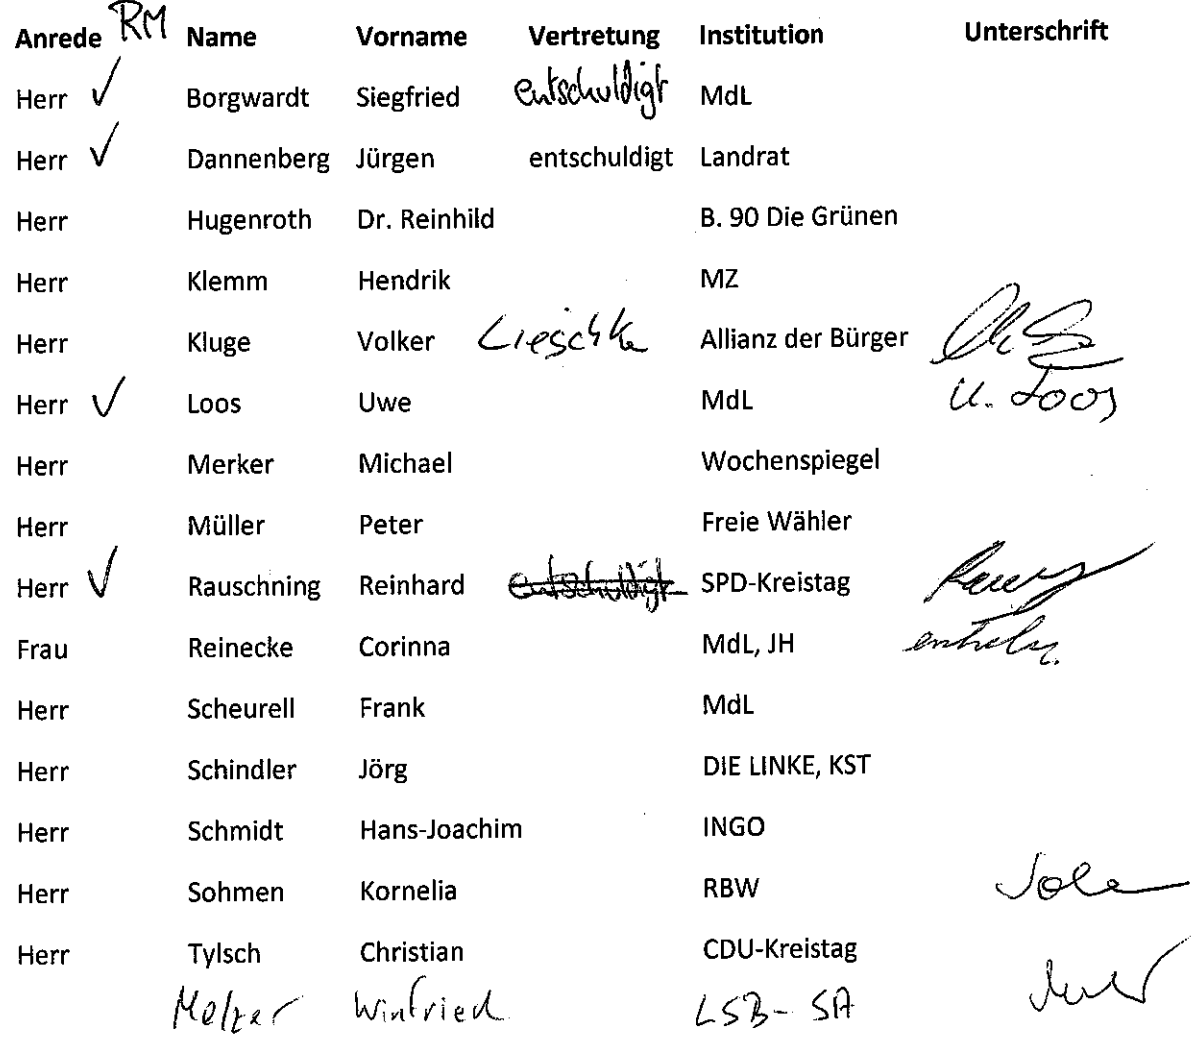 Anrede RM Name Vorname Vertretung Institution Unterschrift
Herr ✓ Borgwardt Siegfried entschuldigt MdL
Herr ✓ Dannenberg Jürgen entschuldigt Landrat
Herr Hugenroth Dr. Reinhild B. 90 Die Grünen
Herr Klemm Hendrik MZ
Herr Kluge Volker Lieschke Allianz der Bürger
Herr ✓ Loos Uwe MdL U. Loos
Herr Merker Michael Wochenspiegel
Herr Müller Peter Freie Wähler
Herr ✓ Rauschning Reinhard entschuldigt SPD-Kreistag
Frau Reinecke Corinna MdL, JH
Herr Scheurell Frank MdL
Herr Schindler Jörg DIE LINKE, KST
Herr Schmidt Hans-Joachim INGO
Herr Sohmen Kornelia RBW
Herr Tylsch Christian CDU-Kreistag
Melzer Winfried LSB-SA